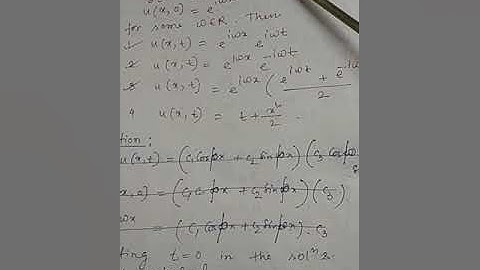 u(x,0) = e^{iωx}
for some ω∈R. Then
1. u(x,t) = e^{iωx} e^{iωt}
2. u(x,t) = e^{iωx} e^{-iωt}
3. u(x,t) = e^{iωx} ( e^{iωt} + e^{-iω / 2
4 u(x,t) = t + x²/2 .
tion:
u(x,t) = (c₁ cospx + c₂ sinpx) (c₃ cosp
x,0) = (c₁ cospx + c₂ sinpx) (c₃)
ωx = (c₁ cospx + c₂ sinpx) . c₃
ting t=0 in the solⁿ